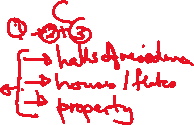 C
① → ② + ③
→ halls of residence
or → houses / flats
→ property